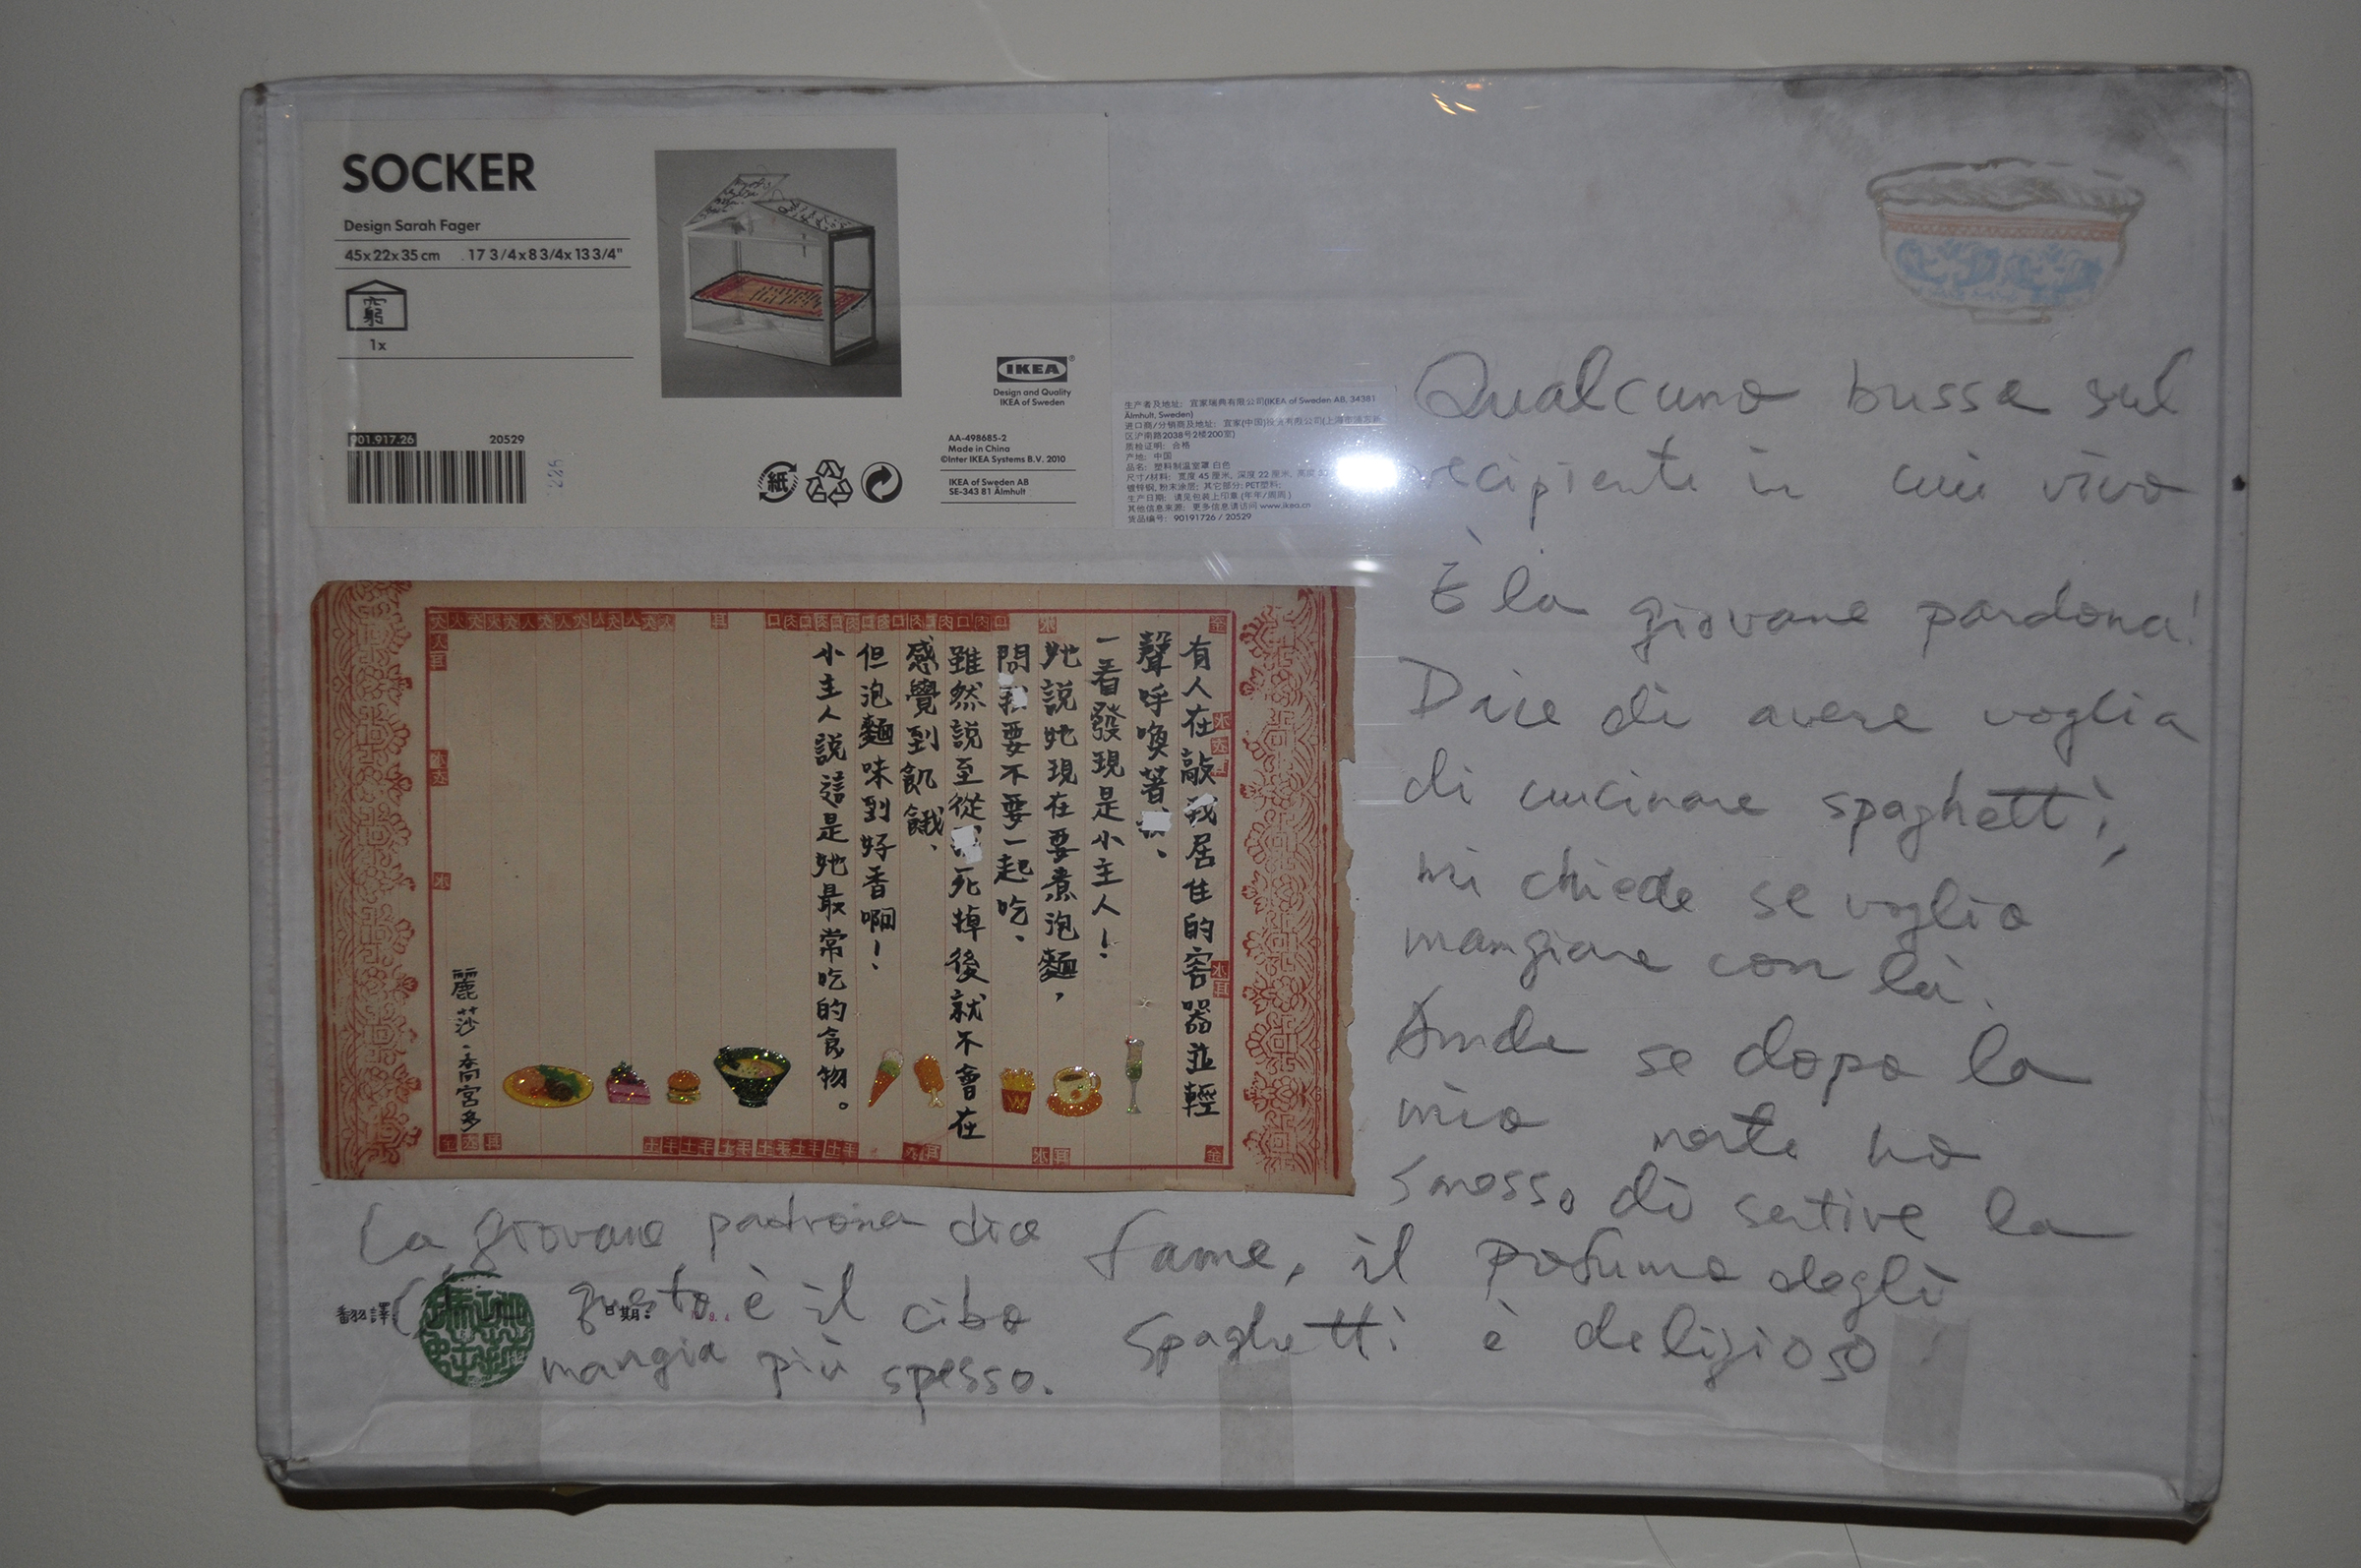 SOCKER
Design Sarah Fager
45x22x35 cm . 17 3/4x8 3/4x13 3/4"
窮
1x
901.917.26 20529
IKEA ®
Design and Quality
IKEA of Sweden
AA-498685-2
Made in China
©Inter IKEA Systems B.V. 2010
IKEA of Sweden AB
SE-343 81 Älmhult
紙
生产者及地址: 宜家瑞典有限公司(IKEA of Sweden AB, 34381
Älmhult, Sweden)
进口商/分销商及地址: 宜家(中国)投资有限公司(上海市浦东新
区沪南路2038号2楼200室)
质检证明: 合格
产地: 中国
品名: 塑料制温室罩 白色
尺寸/材料: 宽度 45 厘米, 深度 22 厘米, 高度
镀锌钢, 粉末涂层; 其它部分: PET塑料;
生产日期: 请见包装上印章 (年年/周周)
其他信息来源: 更多信息请访问 www.ikea.cn
货品编号: 90191726 / 20529
有人在敲我居住的容器並輕
聲呼喚著、
一看發現是小主人!
她說她現在要煮泡麵,
問我要不要一起吃、
雖然說至從死掉後就不會在
感覺到飢餓、
但泡麵味到好香啊!
小主人說這是她最常吃的食物。
麗莎·喬宮多
Qualcuno bussa sul
recipiente in cui vivo
È la giovane pardona!
Dice di avere voglia
di cucinare spaghetti,
mi chiede se voglio
mangiare con là.
se dopo la
mia morte ho
smesso di sentire la
fame, il profumo degli
spaghetti è delizioso!
La giovane padrona dice
questo è il cibo
mangia più spesso.
翻譯
日期: